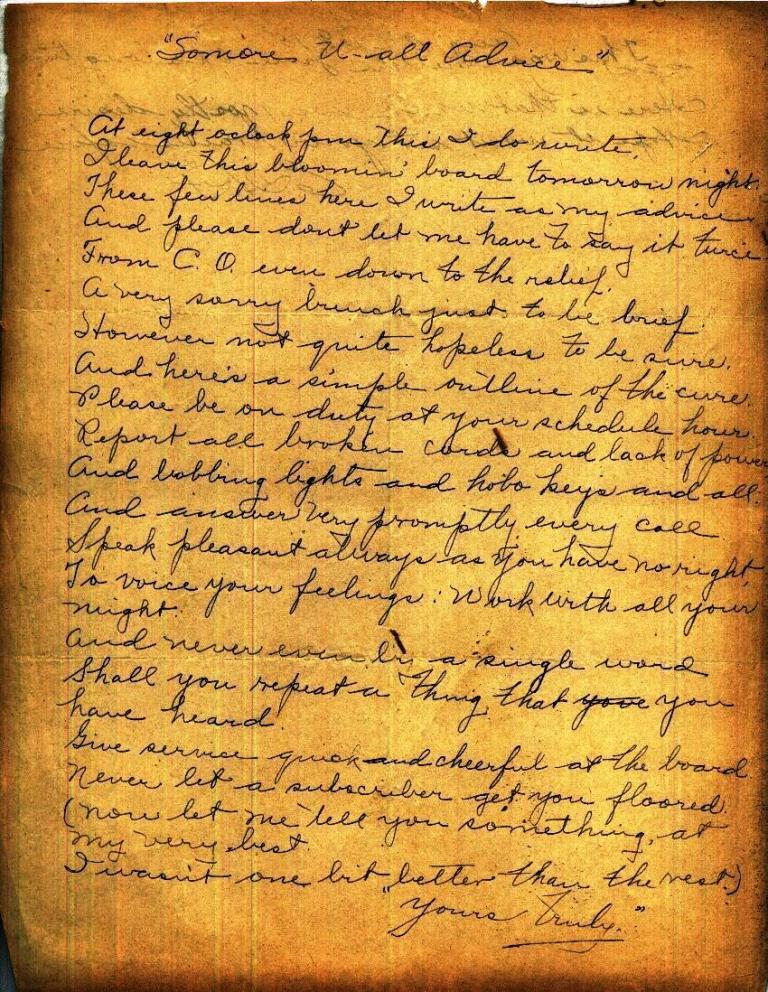 "Somore U-all Advice"
At eight oclock pm this I do write.
I leave this bloomin' board tomorrow night.
These few lines here I write as my advice
And please don't let me have to say it twice
From C. O. even down to the relief.
A very sorry bunch just to be brief.
However not quite hopeless to be sure.
And here's a simple outline of the cure.
Please be on duty at your schedule hour.
Report all broken cords and lack of power
And bobbing lights and hobo keys and all.
And answer very promptly every call
Speak pleasant always as you have no right,
To voice your feelings: Work with all your
might.
And never even by a single word
Shall you repeat a thing that youve you
have heard
Give service quick and cheerful at the board
Never let a subscriber get you floored.
(now let me tell you something, at
my very best
I wasn't one bit better than the rest.)
"Yours Truly."